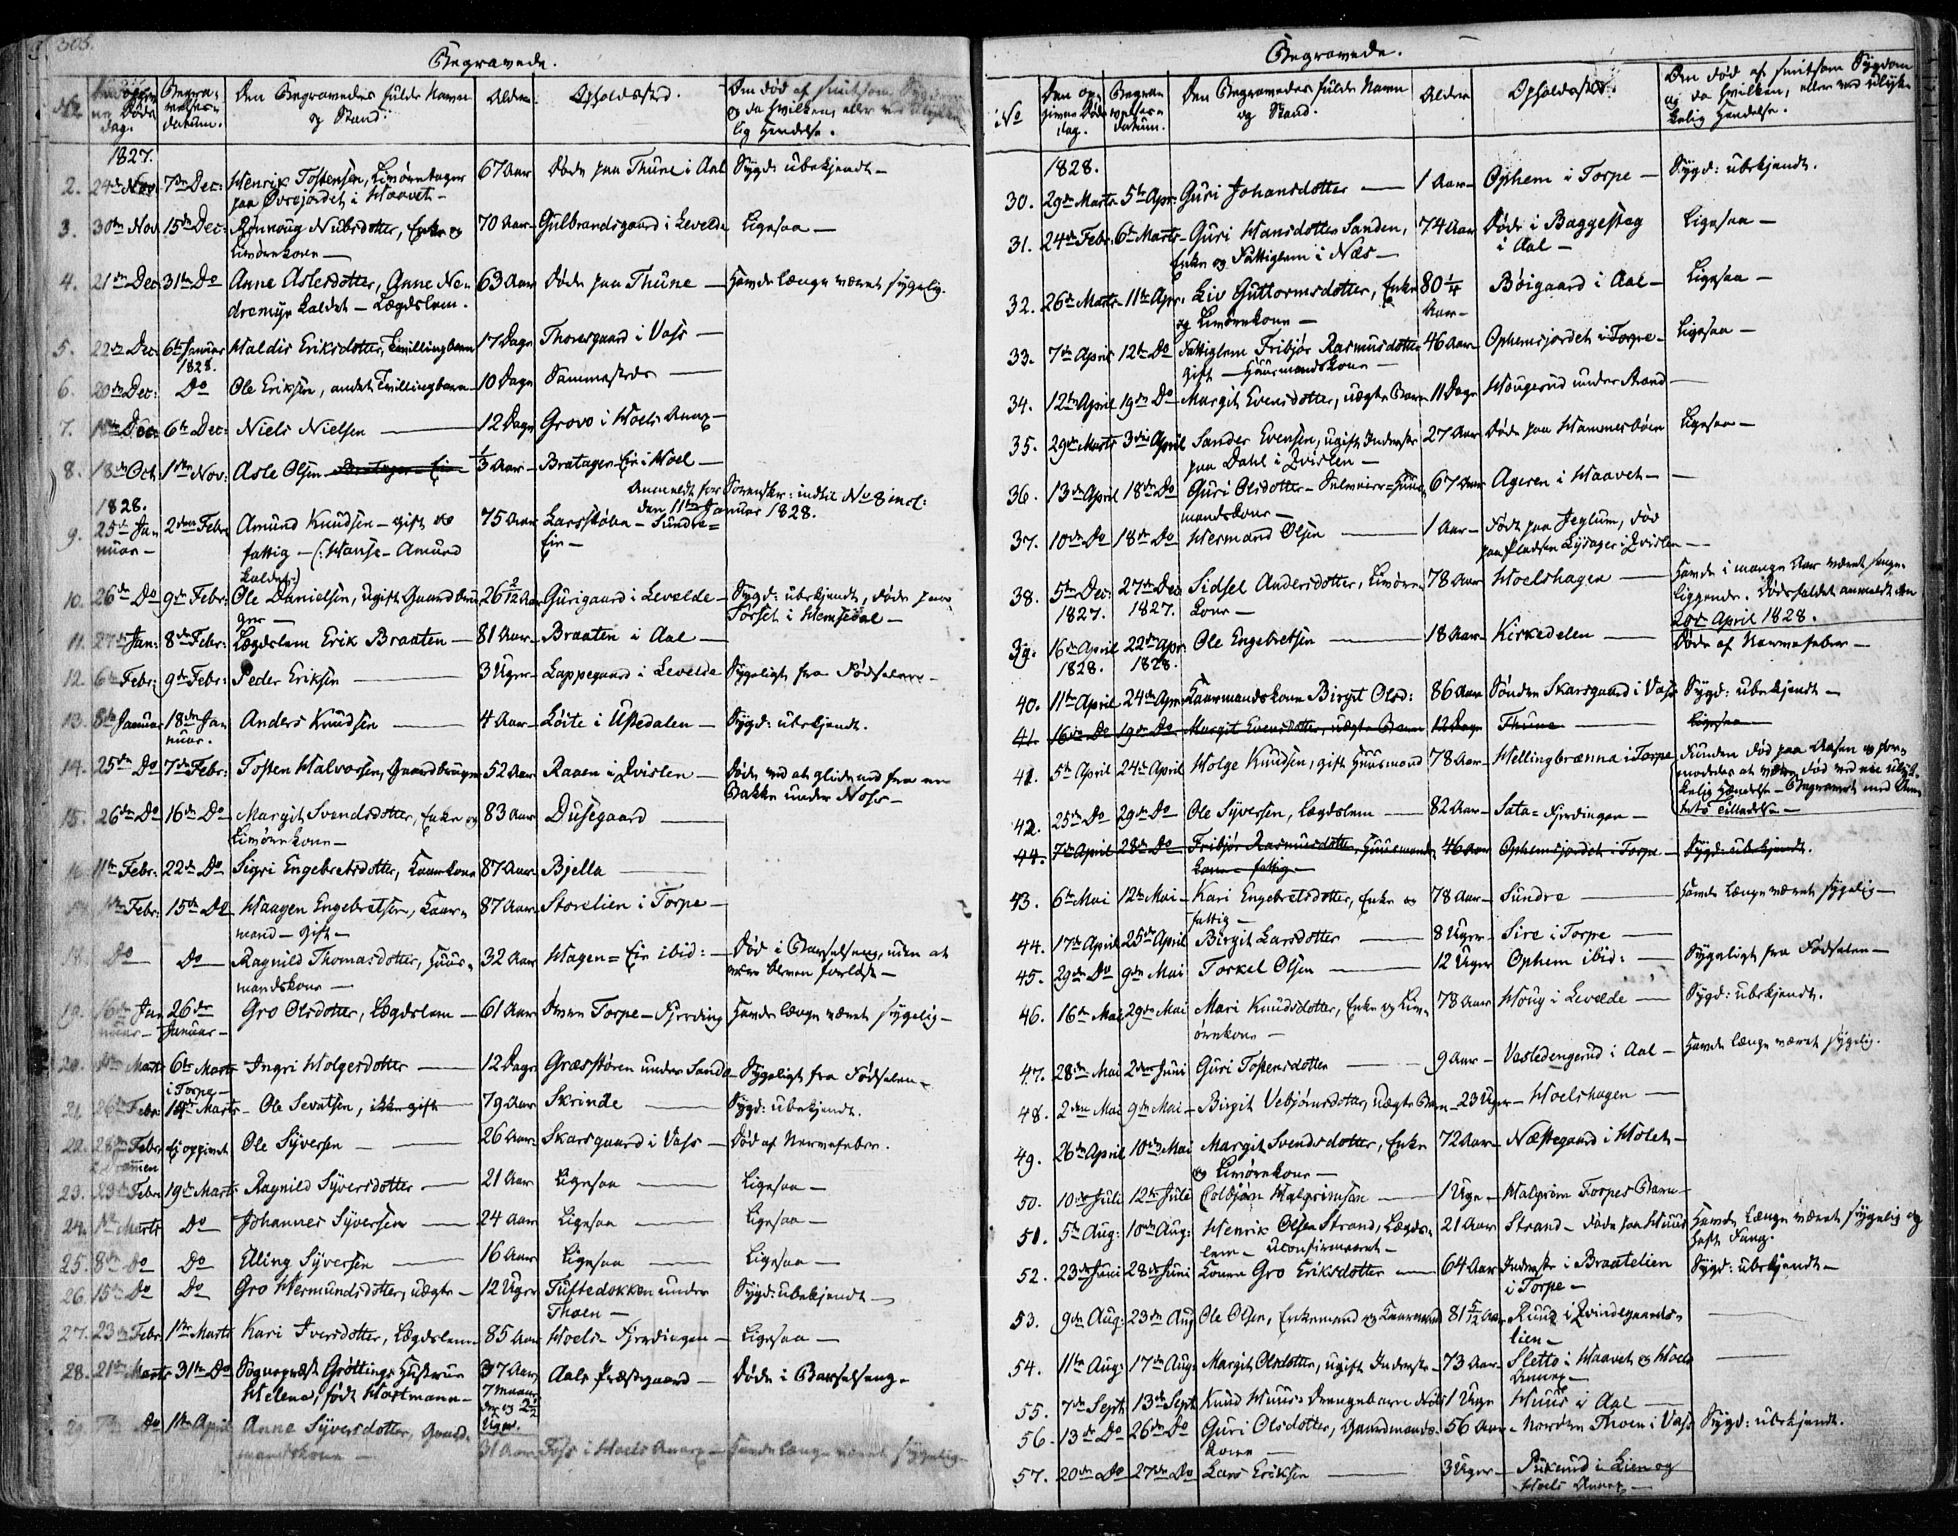 308.
Begravede.
No
Døds dag.
Begravelses datum.
Den Begravedes fulde Navn og Stand.
Alder
Opholdssted.
Om død af smitsom Sygdom og da hvilken, eller ved ulykkelig Hendelse.
1827.
2. 24de Nov. 7de Dec: Henrik Tostensen, Livørentager 67 Aar døde paa Thune i Aal Sygd: ubekjendt –
paa Øvrejordet i Haavet –
3. 30te Nov 15de Dec: Rønnoug Nubsdotter, Enke og 70 Aar Gulbrandsgaard i Levelde Ligesaa –
Livørenkone –
4. 21de Dec. 31te Do Anne Aslesdotter, Anne Ne- 63 Aar døde paa Thune – Havde længe været sygelig.
dremyr kaldet – Lægdslem.
5. 22de Dec: 6te Januar Haldis Eriksdotter, Tvillingbarn 17 Dage Thoresgaard i Vats –
1828.
6. 20de Dec: Do Ole Eriksen, andet Tvillingbarn 10 Dage Sammesteds –
7. Dec: 6te Dec: Niels Nielsen – 12 Dage Grovo i Hoels Annex –
8. 18de Oct 1ste Nov: Asle Olsen 1/3 Aar – Bratager-Eie i Hoel –
Anmeldt for Sorenskr: indtil No 8 incl:
den 11te Januar 1828.
1828.
9. 25de Ja- 2den Febr. Amund Knudsen – gift og 75 Aar Larsstølen – Sundre=
nuar – fattig – (: Hanse-Amund Eie –
kaldet:)
10. 26de Do 9de Febr: Ole Danielsen, ugift Gaardbru- 26 2/12 Aar Gurigaard i Levelde – Sygd: ubekjendt, døde paa
ger – Torset i Hemsedal –
11. 27de Jan: 8de Febr: Lægdslem Erik Braaten – 81 Aar – Braaten i Aal –
12. 6te Febr: 9de Febr: Peder Eriksen – 3 Uger – Lappegaard i Levelde Sygeligt fra Fødselen –
13. 8de Januar 18de Jan Anders Knudsen – 4 Aar – Løite i Ustedalen – Sygd: ubekjendt.
nuar.
14. 25de Do 7de Febr: Tosten Halvorsen, Gaardbruger 52 Aar Raaen i Qvislen – Døde ved at glide ned fra en
Bakke under Noss –
15. 26de Do 16de Do – Margit Svendsdotter, Enke og 83 Aar Dusegaard –
Livørenkone –
16. 11te Febr: 22de Do Sigri Engebretsdotter, Kaarkone 87 Aar Bjella –
Febr: 15de Do Haagen Engebretsen, Kaar= 87 Aar – Storelien i Torpe –
mand – gift –
18. Do Do – Ragnild Thomasdotter, Huus= 32 Aar Hagen=Eie ibid: – Død i Barselseng, uden at
mandskone – være bleven forløst –
19. 16de Jan 26de Gro Olsdotter, Lægdslem – 61 Aar Torpe-Fjerding Havde længe været sygelig –
nuar – Januar –
20. Marts 6te Marts Ingri Holgersdotter – 12 Dage Græsstøren under Sando – Sygeligt fra Fødselen –
i Torpe –
21. 26de Febr. 14de Marts – Ole Sevatsen, ikke gift 79 Aar Skrinde – Sygd: ubekjendt.
22. 28de Febr. Ej opgivet Ole Syversen – 26 Aar Skarsgaard i Vats – Død af Nervefeber.
i Drammen
23. Febr 19de Marts Ragnild Syversdotter – 21 Aar Ligesaa – Ligesaa –
24. 1ste Marts Do Johannes Syversen – 24 Aar Ligesaa – Ligesaa –
25. 8de Do Do Elling Syversen – 16 Aar Ligesaa – Ligesaa –
26. 15de Do Do Gro Hermundsdotter, uægte – 12 Uger Tuftedokken under Sygd: ubekjendt –
Thoen –
27. 23de Febr. 1ste Marts Kari Iversdotter, Lægdslem 85 Aar Hoels-Fjerdingen – Ligesaa –
28. 21de Marts 31te Do Sognepræst Grøttings Hustrue 37 Aar, Aals Præstegaard – Døde i Barselseng.
Helena, født Hartmann – 7 Maaneder og 2 1/2 Uger.
29. Do 1ste April Anne Syversdotter, Gaard-
mandskone – 31 Aar Foss i Hoels Annex – Havde længe været sygelig –
Begravede.
No
Den opgivne Døds dag.
Begravelses datum.
Den Begravedes fulde Navn og Stand.
Alder
Opholdssted.
Om død af smitsom Sygdom og da hvilken, eller ved ulykkelig Hendelse.
1828.
30. 29de Marts 5te Apr. Guri Johansdotter – 1 Aar – Ophem i Torpe – Sygd: ubekjendt.
31. 24de Febr. 6te Marts – Guri Hansdotter Sanden, 74 Aar Døde i Baggestøg Ligesaa –
Enke og Fattiglem i Næs – i Aal –
32. 26de Marts 11te Apr. Liv Guttormsdotter, Enke 80 1/4 Bøigaard i Aal – Ligesaa –
og Livørenkone – Aar –
33. 7de April 12te Do Fattiglem Fribjør Rasmusdotter 46 Aar Ophemsjordet i Torpe – Ligesaa –
gift – Huusmandskone –
34. 12te April 19de Do Margit Evensdotter, uægte Barn 11 Dage Hougerud under Strand –
35. 29de Marts 3die April Sander Evensen, ugift Inderste 27 Aar Døde paa Hammersbøen Ligesaa –
paa Dahl i Qvislen –
36. 13de April 18de Do Guri Olsdotter – Selveier-Huus 67 Aar Ageren i Haavet –
mandskone –
37. 10de Do 18de Do Hermand Olsen – 1 Aar – Født paa Jeglum, død
paa Pladsen Lysager i Qvislen –
38. 5te Dec: 27de Dec Sidsel Andersdotter, Livøren 78 Aar Hoelshagen – Havde i mange Aar været senge-
1827. 1827. kone – liggende. Dødsfaldet anmeldt den
20de April 1828.
39. 16de April 22de Apr. Ole Engebretsen – 18 Aar Kirkedelen – Døde af Nervefeber –
1828. 1828.
40. 11te April 24de Apr. Kaarmandskone Birgit Olsd: 86 Aar Sønden Skarsgaard i Vats Sygd: ubekjendt –
41. 16de Do 19de Do Margit Evensdotter, uægte Barn 12 Dage Thune – Ligesaa –
41. 5te April 24de April Holge Knudsen, gift Huusmand 78 Aar – Hellingbrænna i Torpe Funden død paa Aasen og for-
modedes at være død ved en ulyk-
kelig Hændelse – Begravet med Am-
tets Tilladelse –
42. 25de Do 29de Do Ole Syversen, Lægdslem – 82 Aar – Sata-Fjerdingen –
44. 7de April 28de Do Fribjør Rasmusdotter, Huusmands 46 Aar Ophemsjordet i Torpe – Sygd: ubekjendt.
kone – fattig –
43. 6te Mai 12te Mai – Kari Engebretsdotter, Enke og 78 Aar – Sundre – Havde længe været sygelig –
fattig –
44. 17de April 25de April Birgit Larsdotter – 8 Uger Sire i Torpe –
45. 29de Do 9de Mai Torkel Olsen – 12 Uger Ophem ibid: – Sygeligt fra Fødselen –
46. 16de Mai 29de Mai Mari Knudsdotter, Enke og Liv- 78 Aar Houg i Levelde – Sygd: ubekjendt.
ørenkone –
47. 28de Mai 2den Juni Guri Tostensdotter – 9 Aar – Vestledengerud i Aal – Havde længe været sygelig.
48. 2den Mai 9de Mai – Birgit Vebjørnsdotter, uægte Barn – 23 Uger – Hoelshagen –
49. 26de April 10de Mai Margit Svendsdotter, Enke 72 Aar – Næstegaard i Holet –
og Livørenkone –
50. 10de Juli 12te Juli Colbjørn Halgrimsen – 1 Uge – Halgrim Torpes Barn –
51. 5te Aug: 10de Aug: Henrik Olsen Strand, Lægds- 21 Aar Strand – døde paa Huus Havde længe været sygelig og
lem – uconfirmeret – haft Fang.
52. 23de Juni 28de Juni Konen Gro Eriksdotter – 64 Aar Inderste i Braatelien Sygd: ubekjendt –
i Torpe –
53. 9de Aug: 23de Aug Ole Olsen, Enkemand og Kaarmand 81 5/12 Aar – Ruud i Qvindegaards-
lien –
54. 11te Aug: 17de Aug: Margit Olsdotter, ugift Inderste – 73 Aar Sletto i Haavet og Hoels
Annex –
55. 7de Sept. 13de Sept. Knud Huus's Drengebarn 1 Uge Huus i Aal –
56. 13de Do 26de Do Guri Olsdotter, Gaardmands- 56 Aar – Nordre Thoen i Vats Sygd: ubekjendt.
kone –
57. 20de Do 27de Do Lars Eriksen – 3 Uger – i Lien og
Hoels Annex –